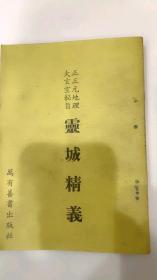 正三元地理
大玄空秘旨
靈城精義
萬有善書出版社